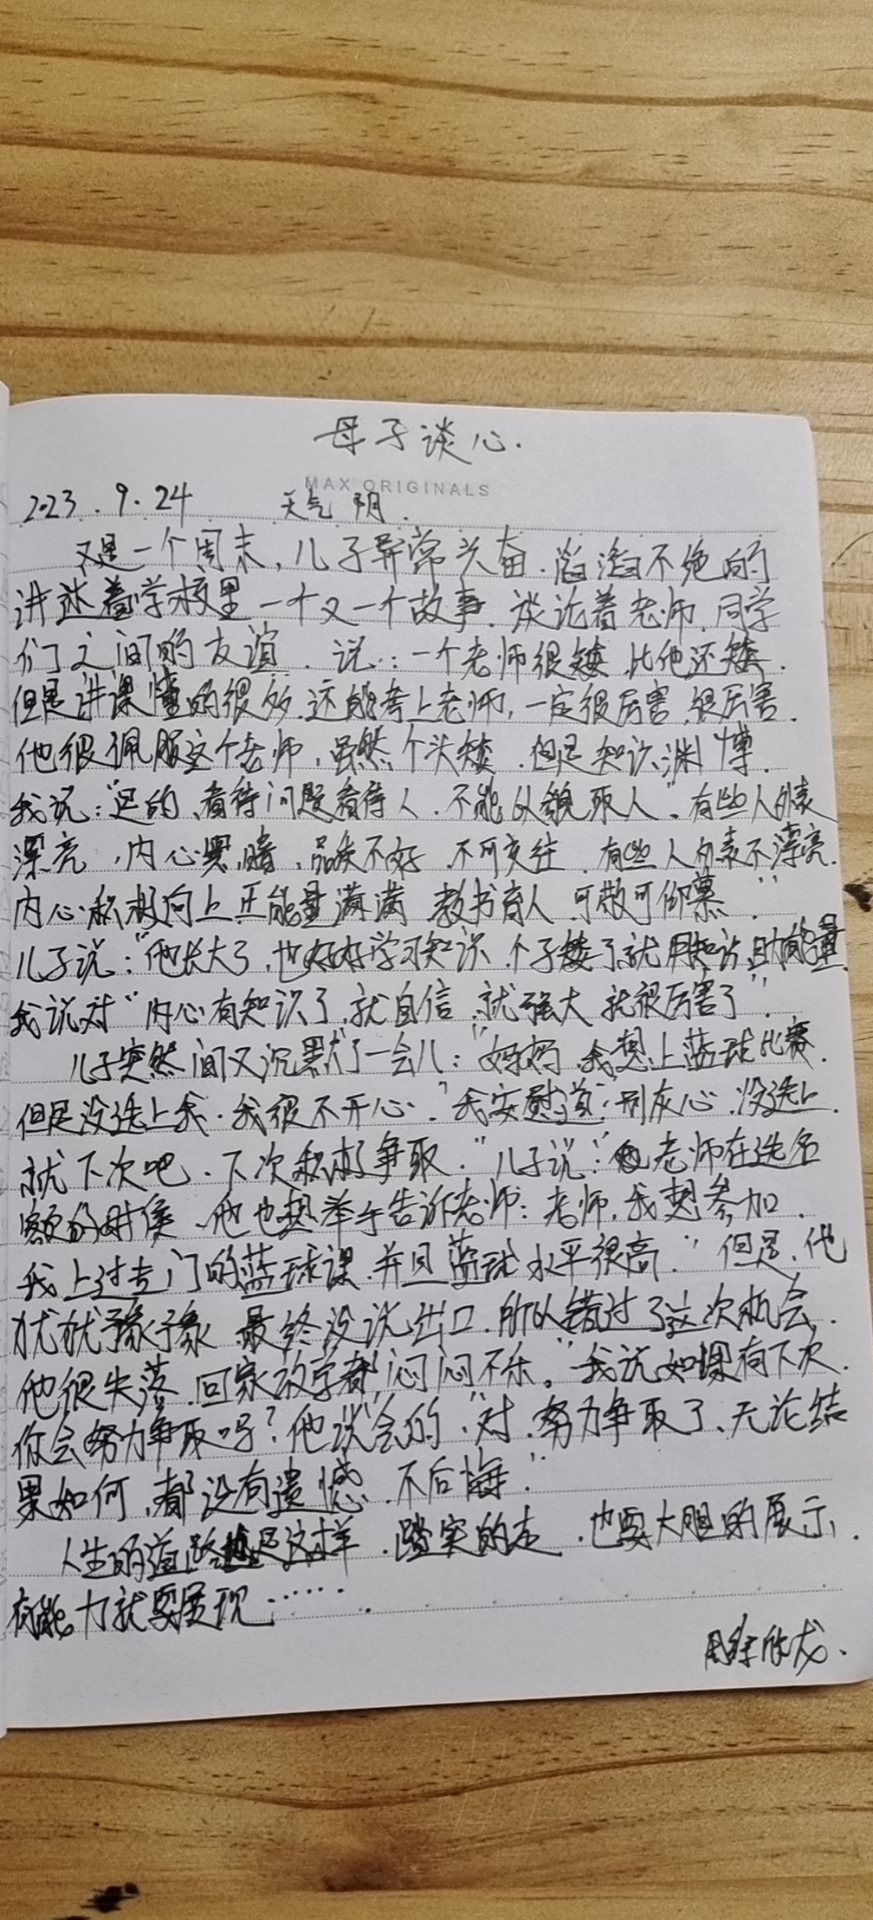 母子谈心.
MAX ORIGINALS
2023.9.24 天气 阴.
又是一个周末,儿子异常兴奋.滔滔不绝的
讲述着学校里一个又一个故事.谈论着老师.同学
们之间的友谊.说:一个老师很矮 比他还矮.
但是讲课懂的很多.还能考上老师,一定很厉害.很厉害.
他很佩服这个老师,虽然个头矮.但是知识渊博.
我说:"是的、看待问题看待人.不能以貌取人".有些人外表
漂亮,内心黑暗、品质不好 不可交往.有些人外表不漂亮.
内心积极向上正能量满满 教书育人 可敬可仰慕."
儿子说:"他长大了,也好好学习知识 个子矮了就用知识助能量.
我说对"内心有知识了.就自信.就强大 就很厉害了".
儿子突然间又沉默了一会儿:"妈妈 我想上蓝球比赛.
但是没选上我.我很不开心."我安慰道:"别灰心.没选上.
就下次吧.下次积极争取."儿子说:"老师在选名
额的时候、他也想举手告诉老师:老师,我想参加.
我上过专门的蓝球课.并且蓝球水平很高."但是.他
犹犹豫豫 最终没说出口.所以错过了这次机会.
他很失落.回家放学都闷闷不乐。"我说如果有下次.
你会努力争取吗?他说"会的".对.努力争取了、无论结
果如何,都没有遗憾.不后悔."
人生的道路就是这样.踏实的走.也要大胆的展示.
有能力就要展现…….